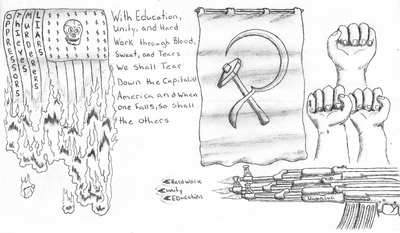 OPPRESSORS
THIEVES
MURDERERS
LIARS
With Education,
Unity, and Hard
Work through Blood,
Sweat, and Tears
We Shall Tear
Down the Capitalist
America and When
one Falls, So Shall
the Others
Hardwork
Unity
EDucation